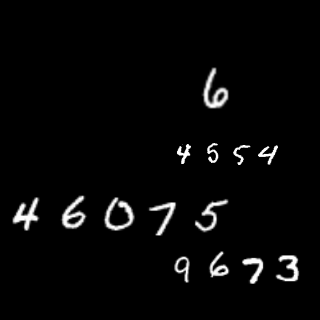 6
4 5 5 4
4 6 0 7 5
9 6 7 3